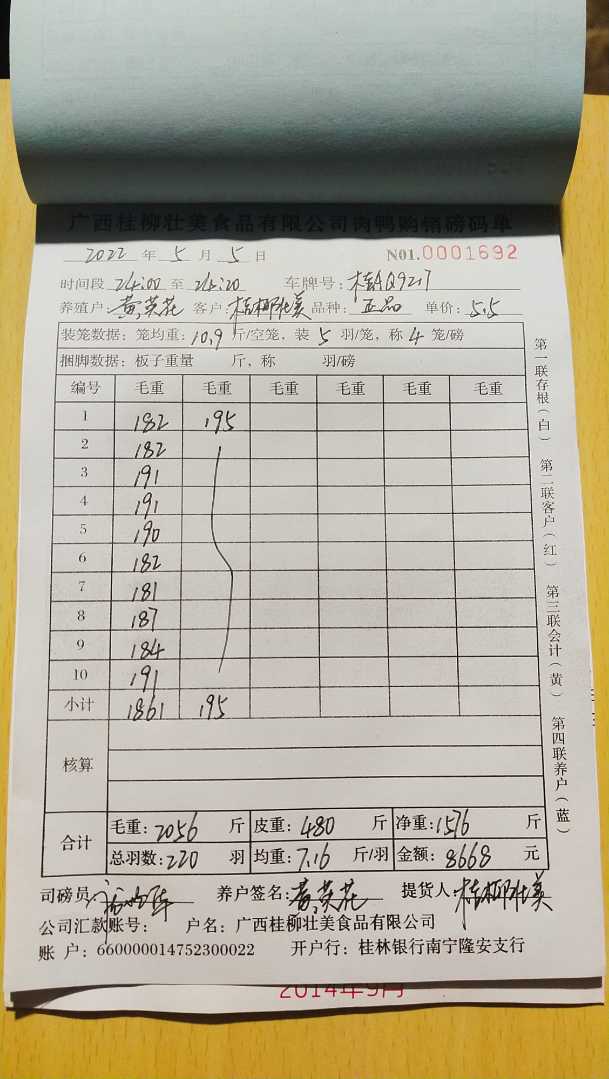 广西桂柳壮美食品有限公司肉鸭购销磅码单
2022 年 5 月 5 日 N01.0001692
时间段 24:00 至 24:20 车牌号: 桂AQ9217
养殖户: 黄英花 客户: 桂柳壮美 品种: 正品 单价: 5.5
装笼数据: 笼均重: 10.9 斤/空笼, 装 5 羽/笼, 称 4 笼/磅
捆脚数据: 板子重量 斤, 称 羽/磅
编号 毛重 毛重 毛重 毛重 毛重 毛重
1 182 195
2 182
3 191
4 191
5 190
6 182
7 181
8 187
9 184
10 191
小计 1861 195
核算
合计 毛重: 2056 斤 皮重: 480 斤 净重: 1576 斤
总羽数: 220 羽 均重: 7.16 斤/羽 金额: 8668 元
司磅员: 养户签名: 黄英花 提货人: 桂柳壮美
公司汇款账号: 户名: 广西桂柳壮美食品有限公司
账 户: 660000014752300022 开户行: 桂林银行南宁隆安支行
第一联存根(白) 第二联客户(红) 第三联会计(黄) 第四联养户(蓝)
2014年9月